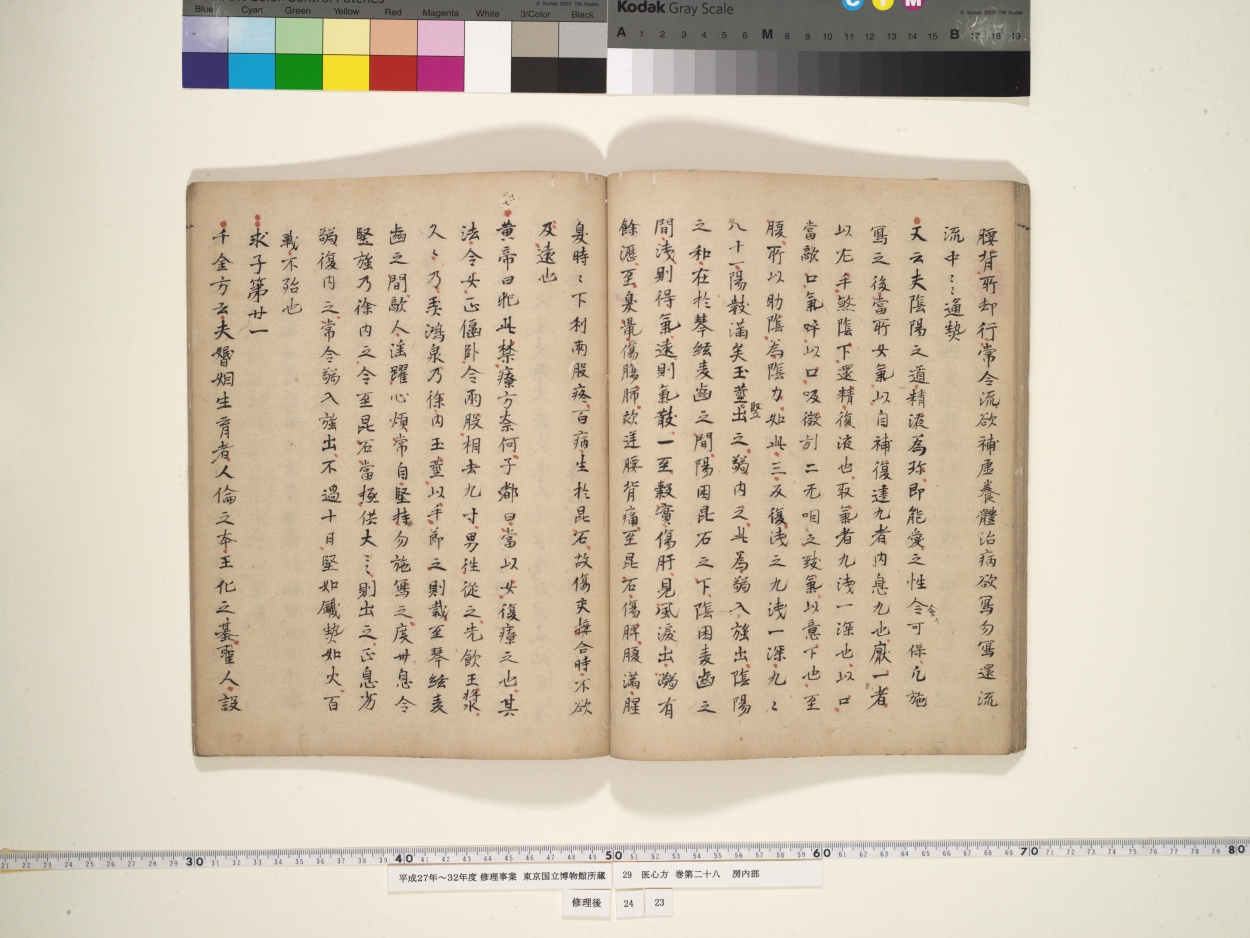 Blue Cyan Green Yellow Red Magenta White 3/Color Black
© Kodak, 2007 TM: Kodak
Kodak Gray Scale
C Y M
© Kodak, 2007 TM: Kodak
A 1 2 3 4 5 6 M 8 9 10 11 12 13 14 15 B 17 18 19
腰背所却行常令流欲補虛養體治病欲寫勿寫還流
流中〻通熱
又云夫陰陽之道精液為珍即能愛之性命可保凡施
寫之後當所女氣以自補復建九者內息九也厭一者
以左手煞陰下還精復液也取氣者九淺一深也以口
當敵口氣呼以口吸微引二无咽之致氣以意下也至
腹所以助陰為陰力如此三反復淺之九淺一深九〻
八十一陽數滿矣玉莖堅出之弱內之此為弱入強出陰陽
之和在於琴絃麦齒之間陽困昆石之下陰困麦齒之
間淺則得氣遠則氣散一至穀實傷肝見風淚出溺有
餘瀝至臭鼠傷腸肺欬逆腰背痛至昆石傷脾腹滿腥
臭時〻下利兩股疼百病生於昆石故傷交接合時不欲
及遠也
黃帝曰犯此禁療方奈何子都曰當以女復療之也其
法令女正偃卧令兩股相去九寸男往從之先飲玉漿
久〻乃弄鴻泉乃徐內玉莖以手節之則裁至琴絃麦
齒之間敵人滛躍心煩常自堅持勿施寫之度卅息令
堅強乃徐內之令至昆石當極供大〻則出之正息劣
弱復內之常令弱入強出不過十日堅如鐵熱如火百
戰不殆也
求子第廿一
千金方云夫婚姻生育者人倫之本王化之基聖人設
平成27年～32年度 修理事業 東京国立博物館所蔵
29 医心方 巻第二十八 房内部
修理後 24 23